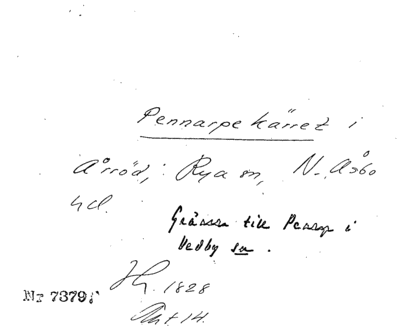 Pennarpekärret i
Årröd, i Rya sn, N. Åsbo
hd.
Gränsar till Pennarp i
Vedby sn.
1828
Akt 14.
Nr 7379.